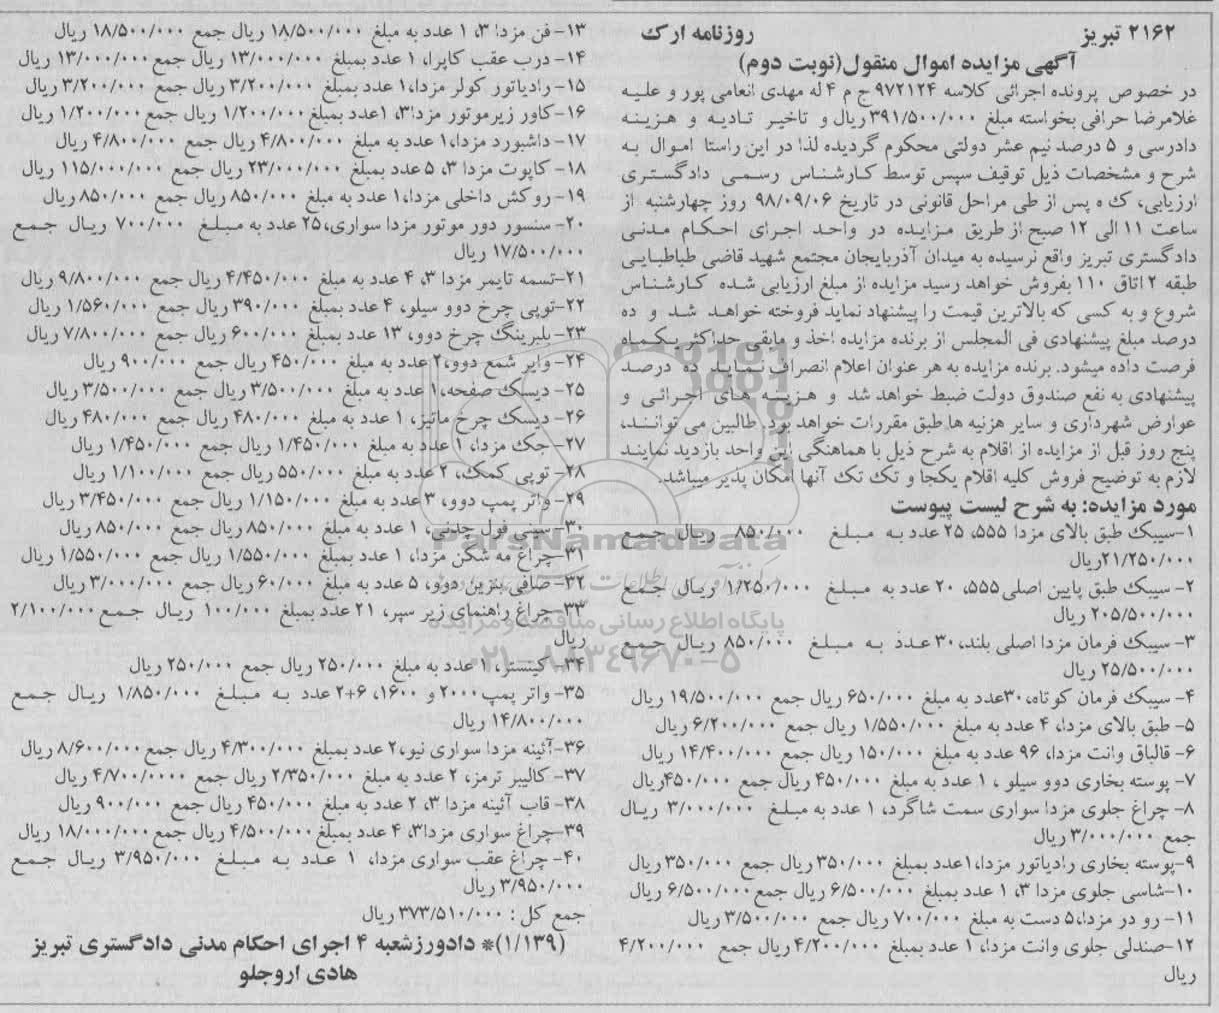 ۲۱۶۲ تبریز
روزنامه ارک
آگهی مزایده اموال منقول(نوبت دوم)
در خصوص پرونده اجرائی کلاسه ۹۷۲۱۲۴ ج م ۴ له مهدی انعامی پور و علیه
غلامرضا حرافی بخواسته مبلغ ۳۹۱/۵۰۰/۰۰۰ ریال و تاخیر تادیه و هزینه
دادرسی و ۵ درصد نیم عشر دولتی محکوم گردیده لذا در این راستا اموال به
شرح و مشخصات ذیل توقیف سپس توسط کارشناس رسمی دادگستری
ارزیابی، ک ه پس از طی مراحل قانونی در تاریخ ۹۸/۰۹/۰۶ روز چهارشنبه از
ساعت ۱۱ الی ۱۲ صبح از طریق مزایده در واحد اجرای احکام مدنی
دادگستری تبریز واقع نرسیده به میدان آذربایجان مجتمع شهید قاضی طباطبایی
طبقه ۲ اتاق ۱۱۰ بفروش خواهد رسید مزایده از مبلغ ارزیابی شده کارشناس
شروع و به کسی که بالاترین قیمت را پیشنهاد نماید فروخته خواهد شد و ده
درصد مبلغ پیشنهادی فی المجلس از برنده مزایده اخذ و مابقی حداکثر یکماه
فرصت داده میشود. برنده مزایده به هر عنوان اعلام انصراف نماید ده درصد
پیشنهادی به نفع صندوق دولت ضبط خواهد شد و هزینه های اجرائی و
عوارض شهرداری و سایر هزنیه ها طبق مقررات خواهد بود. طالبین می توانند،
پنج روز قبل از مزایده از اقلام به شرح ذیل با هماهنگی این واحد بازدید نمایند
لازم به توضیح فروش کلیه اقلام یکجا و تک تک آنها امکان پذیر میباشد.
مورد مزایده: به شرح لیست پیوست
۱-سیبک طبق بالای مزدا ۵۵۵، ۲۵ عدد به مبلغ ۸۵۰/۰۰۰ ریال جمع
۲۱/۲۵۰/۰۰۰ریال
۲- سیبک طبق پایین اصلی ۵۵۵، ۲۰ عدد به مبلغ ۱/۲۵۰/۰۰۰ ریال جمع
۲۰۵/۵۰۰/۰۰۰ ریال
۳- سیبک فرمان مزدا اصلی بلند، ۳۰ عدد به مبلغ ۸۵۰/۰۰۰ ریال جمع
۲۵/۵۰۰/۰۰۰ ریال
۴- سیبک فرمان کوتاه، ۳۰عدد به مبلغ ۶۵۰/۰۰۰ ریال جمع ۱۹/۵۰۰/۰۰۰ ریال
۵- طبق بالای مزدا، ۴ عدد به مبلغ ۱/۵۵۰/۰۰۰ ریال جمع ۶/۲۰۰/۰۰۰ ریال
۶- قالپاق وانت مزدا، ۹۶ عدد به مبلغ ۱۵۰/۰۰۰ ریال جمع ۱۴/۴۰۰/۰۰۰ ریال
۷- پوسته بخاری دوو سیلو ، ۱ عدد به مبلغ ۴۵۰/۰۰۰ ریال جمع ۴۵۰/۰۰۰ریال
۸- چراغ جلوی مزدا سواری سمت شاگرد، ۱ عدد به مبلغ ۳/۰۰۰/۰۰۰ ریال
جمع ۳/۰۰۰/۰۰۰ ریال
۹-پوسته بخاری رادیاتور مزدا،۱عدد بمبلغ ۳۵۰/۰۰۰ ریال جمع ۳۵۰/۰۰۰ ریال
۱۰-شاسی جلوی مزدا ۳، ۱ عدد بمبلغ ۶/۵۰۰/۰۰۰ ریال جمع ۶/۵۰۰/۰۰۰ ریال
۱۱- رو دو مزدا،۵ دست به مبلغ ۷۰۰/۰۰۰ ریال جمع ۳/۵۰۰/۰۰۰ ریال
۱۲-صندلی جلوی وانت مزدا، ۱ عدد بمبلغ ۴/۲۰۰/۰۰۰ ریال جمع ۴/۲۰۰/۰۰۰
ریال
۱۳- فن مزدا ۳، ۱ عدد به مبلغ ۱۸/۵۰۰/۰۰۰ ریال جمع ۱۸/۵۰۰/۰۰۰ ریال
۱۴- درب عقب کاپرا، ۱ عدد بمبلغ ۱۳/۰۰۰/۰۰۰ ریال جمع ۱۳/۰۰۰/۰۰۰ ریال
۱۵- رادیاتور کولر مزدا،۱ عدد بمبلغ ۳/۲۰۰/۰۰۰ ریال جمع ۳/۲۰۰/۰۰۰ ریال
۱۶-کاور زیرموتور مزدا۳، ۱عدد بمبلغ ۱/۲۰۰/۰۰۰ ریال جمع ۱/۲۰۰/۰۰۰ ریال
۱۷- داشبورد مزدا،۱ عدد به مبلغ ۴/۸۰۰/۰۰۰ ریال جمع ۴/۸۰۰/۰۰۰ ریال
۱۸- کاپوت مزدا ۳، ۵ عدد بمبلغ ۲۳/۰۰۰/۰۰۰ ریال جمع ۱۱۵/۰۰۰/۰۰۰ ریال
۱۹- روکش داخلی مزدا،۱ عدد به مبلغ ۸۵۰/۰۰۰ ریال جمع ۸۵۰/۰۰۰ ریال
۲۰- سنسور دور موتور مزدا سواری، ۲۵ عدد به مبلغ ۷۰۰/۰۰۰ ریال جمع
۱۷/۵۰۰/۰۰۰ ریال
۲۱-تسمه تایمر مزدا ۳، ۴ عدد به مبلغ ۴/۴۵۰/۰۰۰ ریال جمع ۹/۸۰۰/۰۰۰ ریال
۲۲-توپی چرخ دوو سیلو، ۴ عدد بمبلغ ۳۹۰/۰۰۰ ریال جمع ۱/۵۶۰/۰۰۰ ریال
۲۳- بلبرینگ چرخ دوو، ۱۳ عدد بمبلغ ۶۰۰/۰۰۰ ریال جمع ۷/۸۰۰/۰۰۰ ریال
۲۴- وایر شمع دوو،۲ عدد به مبلغ ۴۵۰/۰۰۰ ریال جمع ۹۰۰/۰۰۰ ریال
۲۵- دیسک صفحه،۱ عدد به مبلغ ۳/۵۰۰/۰۰۰ ریال جمع ۳/۵۰۰/۰۰۰ ریال
۲۶- دیسک چرخ ماتیز، ۱ عدد به مبلغ ۴۸۰/۰۰۰ ریال جمع ۴۸۰/۰۰۰ ریال
۲۷-جک مزدا، ۱ عدد به مبلغ ۱/۴۵۰/۰۰۰ ریال جمع ۱/۴۵۰/۰۰۰ ریال
۲۸- توپی کمک، ۲ عدد به مبلغ ۵۵۰/۰۰۰ ریال جمع ۱/۱۰۰/۰۰۰ ریال
۲۹- واتر پمپ دوو، ۳ عدد به مبلغ ۱/۱۵۰/۰۰۰ ریال جمع ۳/۴۵۰/۰۰۰ ریال
۳۰-سینی فول چدنی، ۱ عدد به مبلغ ۸۵۰/۰۰۰ ریال جمع ۸۵۰/۰۰۰ ریال
۳۱-چراغ مه شکن مزدا، ۱ عدد بمبلغ ۱/۵۵۰/۰۰۰ ریال جمع ۱/۵۵۰/۰۰۰ ریال
۳۲- صافی بنزین دوو، ۵ عدد به مبلغ ۶۰/۰۰۰ ریال جمع ۳/۰۰۰/۰۰۰ ریال
۳۳-چراغ راهنمای زیر سپر، ۲۱ عدد بمبلغ ۱۰۰/۰۰۰ ریال جمع ۲/۱۰۰/۰۰۰
ریال
۳۴- کینستر، ۱ عدد به مبلغ ۲۵۰/۰۰۰ ریال جمع ۲۵۰/۰۰۰ ریال
۳۵- واتر پمپ ۲۰۰۰ و ۱۶۰۰، ۶+۲ عدد به مبلغ ۱/۸۵۰/۰۰۰ ریال جمع
۱۴/۸۰۰/۰۰۰ ریال
۳۶-آئینه مزدا سواری نیو،۲ عدد بمبلغ ۴/۳۰۰/۰۰۰ ریال جمع ۸/۶۰۰/۰۰۰ ریال
۳۷- کالیبر ترمز، ۲ عدد به مبلغ ۲/۳۵۰/۰۰۰ ریال جمع ۴/۷۰۰/۰۰۰۰ ریال
۳۸- قاب آئینه مزدا ۳، ۲ عدد به مبلغ ۴۵۰/۰۰۰ ریال جمع ۹۰۰/۰۰۰ ریال
۳۹-چراغ سواری مزدا۳، ۴ عدد بمبلغ ۴/۵۰۰/۰۰۰ ریال جمع ۱۸/۰۰۰/۰۰۰ ریال
۴۰- چراغ عقب سواری مزدا، ۱ عدد به مبلغ ۳/۹۵۰/۰۰۰ ریال جمع
۳/۹۵۰/۰۰۰ ریال
جمع کل : ۳۷۳/۵۱۰/۰۰۰ ریال
(۱/۱۳۹)* دادورزشعبه ۴ اجرای احکام مدنی دادگستری تبریز
هادی اروجلو
ParsNamadData
پایگاه اطلاع رسانی مناقصه و مزایده
۰۲۱-۸۸۳۴۹۶۷۰-۵